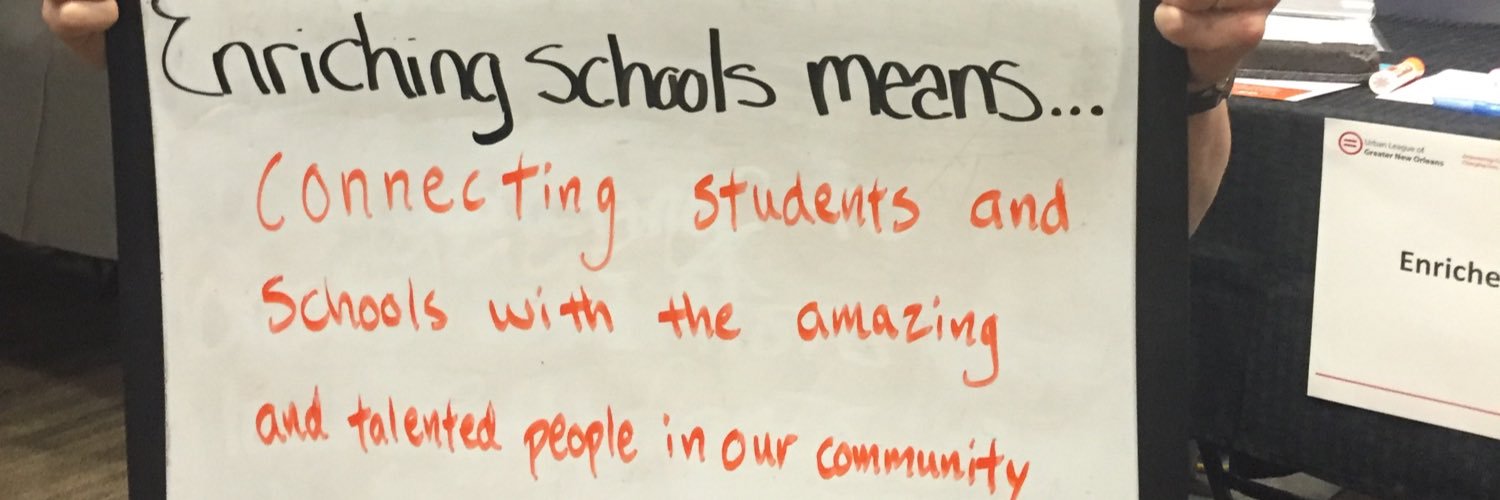 Enriching schools means...
Connecting students and
Schools with the amazing
and talented people in our community
Urban League of
Greater New Orleans
Enriche